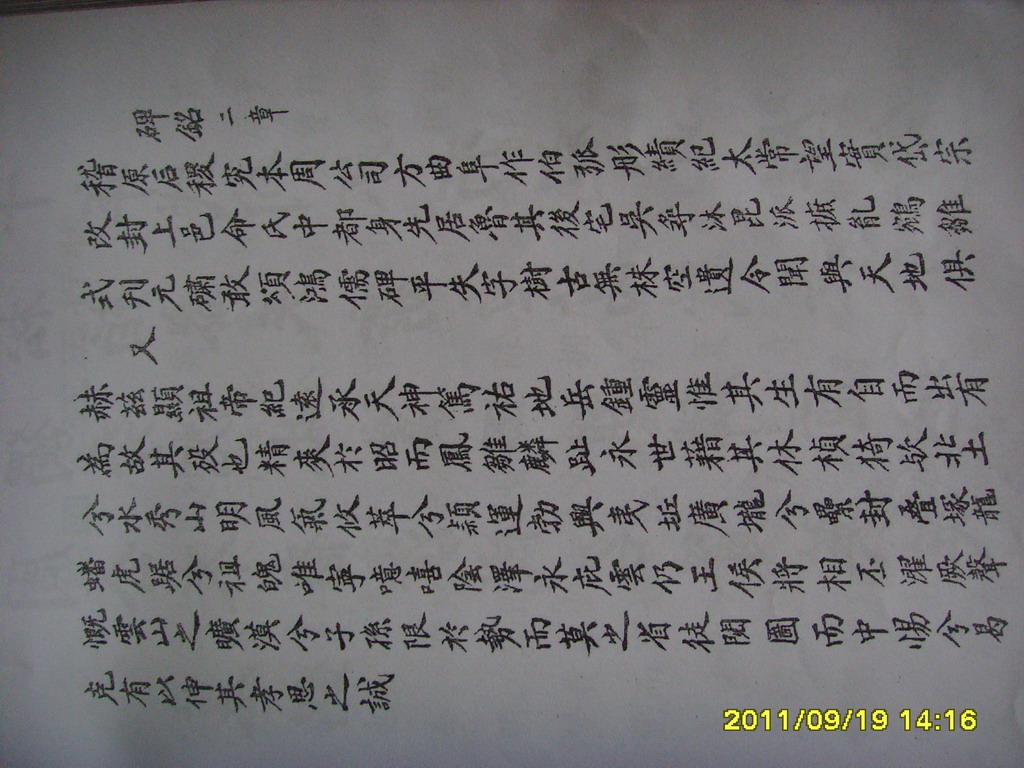 碑銘二章
稽原后稷究本周公司方曲阜作伯孤彤績紀太常望實岱宗
改封上邑命氏中都身先居魯其後宅吳尋沐毘派撫亂鵷雛
式刊元碡敢頌鴻儒碑平失字樹古無株空遺令聞與天地俱
又
赫茲顯祖帝紀遠承天神篤祐地岳鍾靈惟其生有自而出有
為故其歿也精爽於昭而鳳雛麟趾永世藉其休楨猗歟北土
兮水秀山明風氣攸萃兮潁運勃興夷坵廣壠兮纍封疊塚龍
蟠虎踞兮祖魄唯寧噫嘻陰澤永庇雲仍王侯將相丕濯厥聲
慨雲山之曠漠兮子孫限於勢而莫之省徒閱圖而中惕兮曷
克有以伸其孝思之誠
2011/09/19 14:16